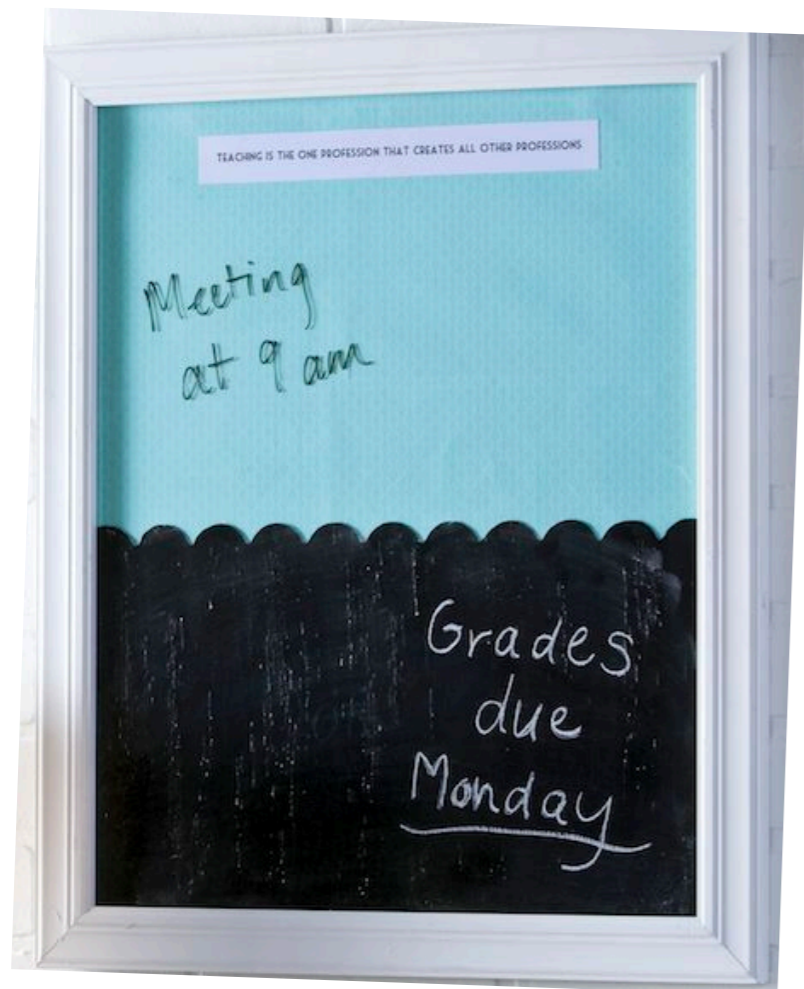 TEACHING IS THE ONE PROFESSION THAT CREATES ALL OTHER PROFESSIONS
Meeting
at 9 am
Grades
due
Monday